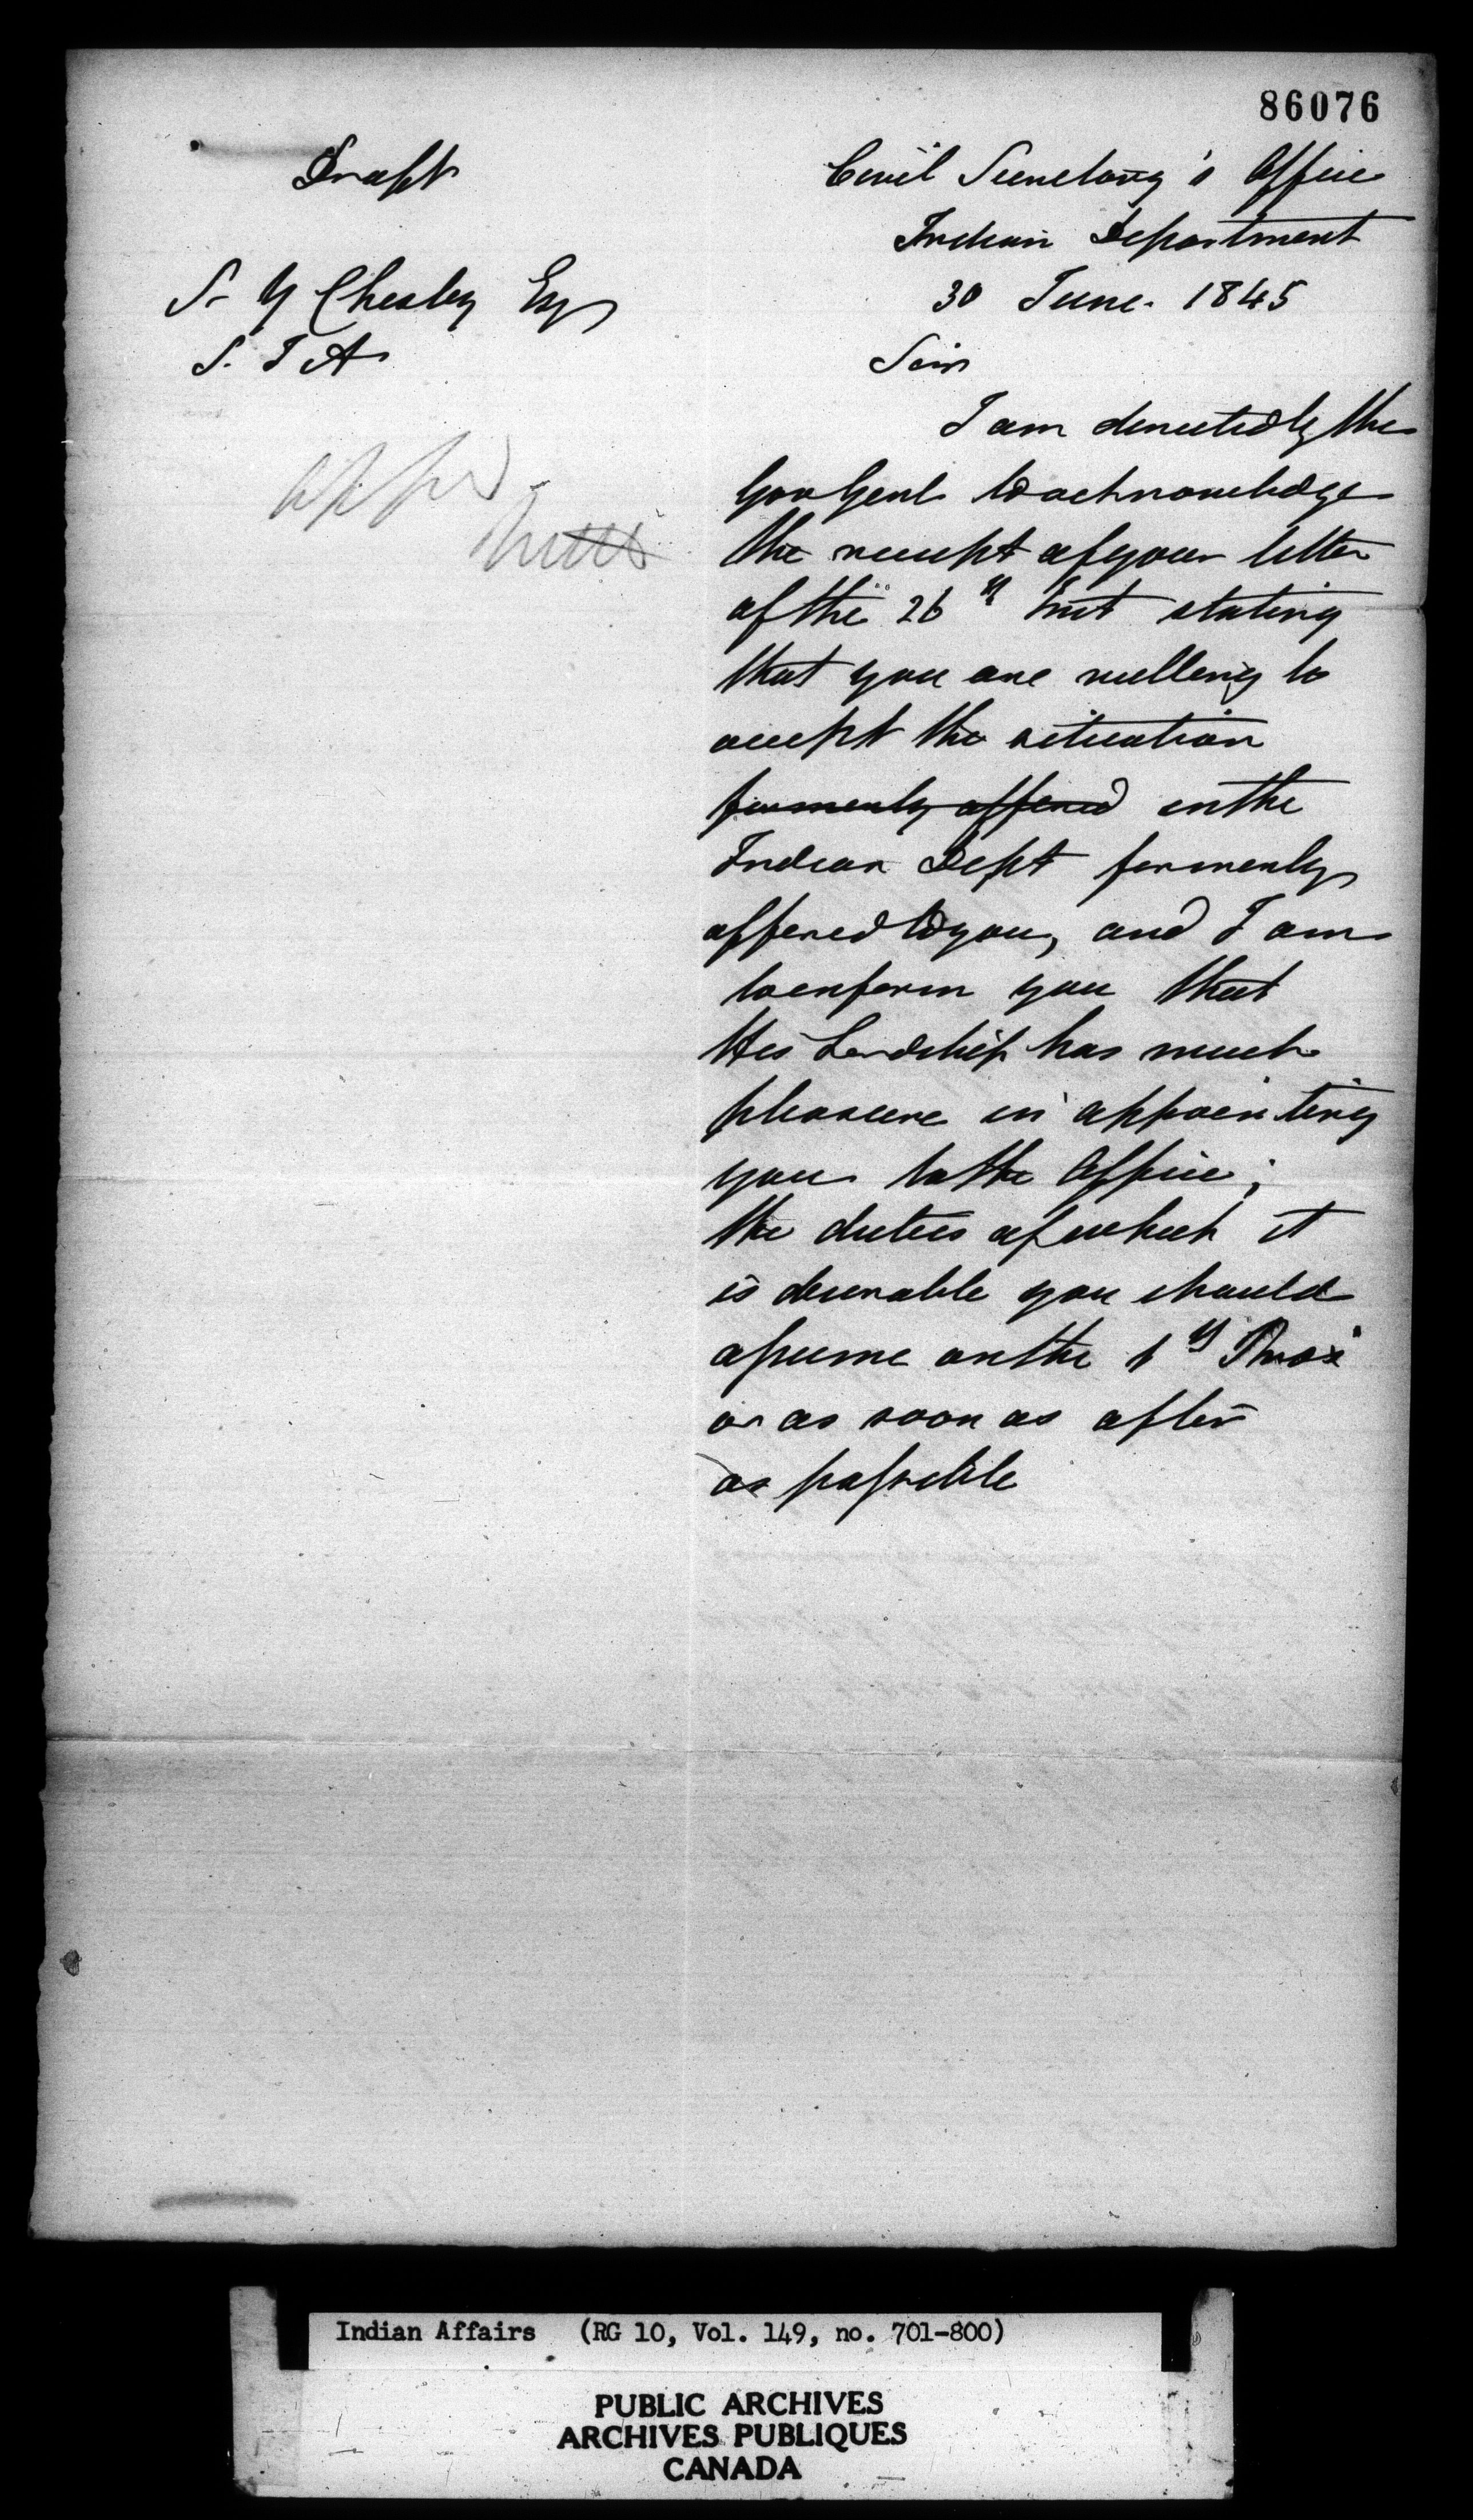 86076
Draft
S- Y Chesley Esq
S. I A
appd
Civil Secretary's Office
Indian Department
30 June. 1845
Sir
I am directed by the
Gov Genl to acknowledge
the receipt of your letter
of the 26th Inst stating
that you are willing to
accept the situation
formerly offered in the
Indian Dept formerly
offered to you, and I am
to inform you that
His Lordship has much
pleasure in appointing
you to the Office;
the duties of which it
is desirable you should
assume on the Prox
or as soon as after
as possible
Indian Affairs (RG 10, Vol. 149, no. 701-800)
PUBLIC ARCHIVES
ARCHIVES PUBLIQUES
CANADA